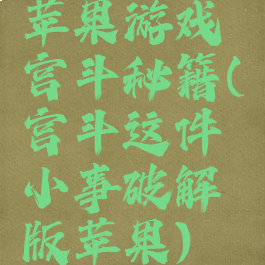 苹果游戏
宫斗秘籍(
宫斗这件
小事破解
版苹果)